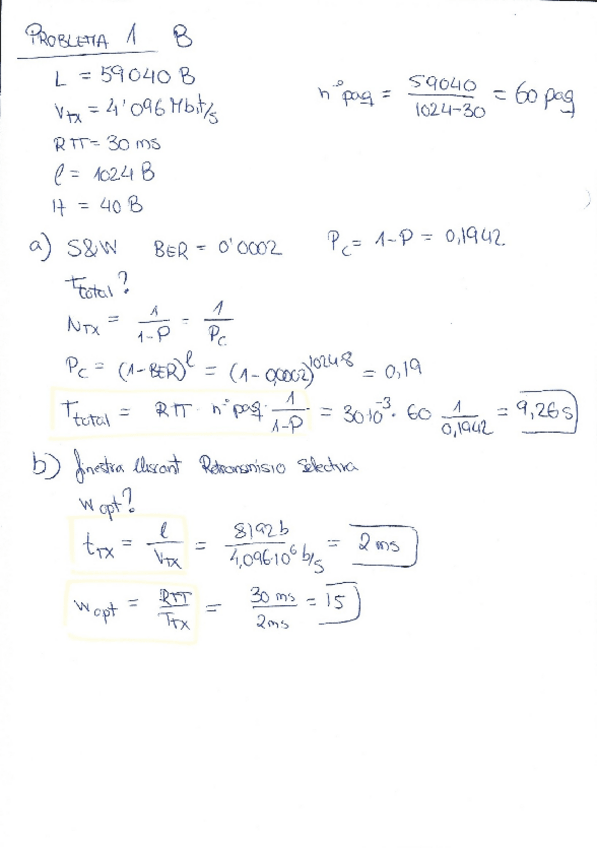 PROBLEMA 1 B
L = 59040 B
V_TX = 4'096 Mbit/s
RTT = 30 ms
l = 1024 B
H = 40 B
nº paq = 59040 / 1024-30 = 60 paq
a) S&W BER = 0'0002 P_C = 1-P = 0,1942
T_total?
N_TX = 1/1-P = 1/P_C
P_C = (1-BER)^l = (1-0,0002)^1024·8 = 0,19
T_total = RTT · nº paq · 1/1-P = 30·10^-3 · 60 1/0,1942 = 9,26 s
b) finestra lliscant Retransmisió Selectiva
W opt?
t_TX = l/V_TX = 8192 b / 4,096·10^6 b/s = 2 ms
W opt = RTT/T_TX = 30 ms / 2 ms = 15